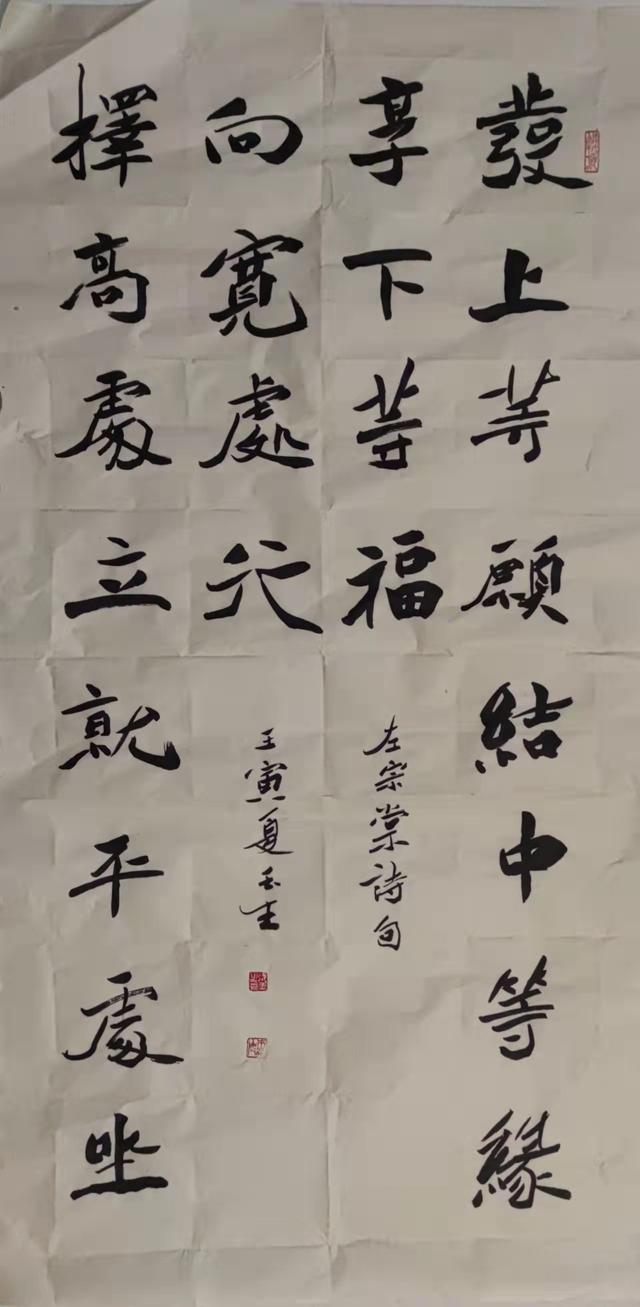 發上等願結中等緣
享下等福
左宗棠詩句
擇高處立就平處坐
向寬處行
壬寅夏